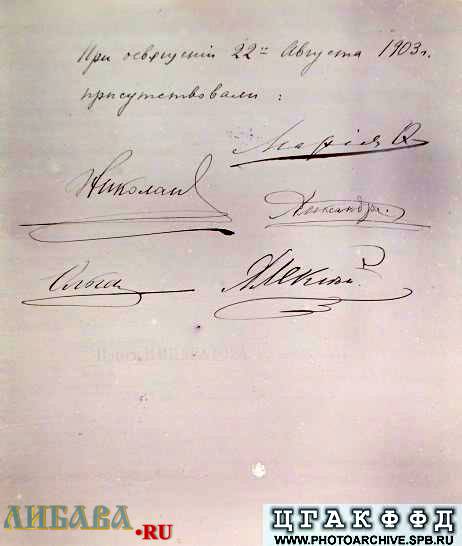 При освященiи 22го Августа 1903 г.
присутствовали:
Марiя
Николай
Александра
Ольга
Алексей
ЛИБАВА.RU
ЦГАКФФД
WWW.PHOTOARCHIVE.SPB.RU